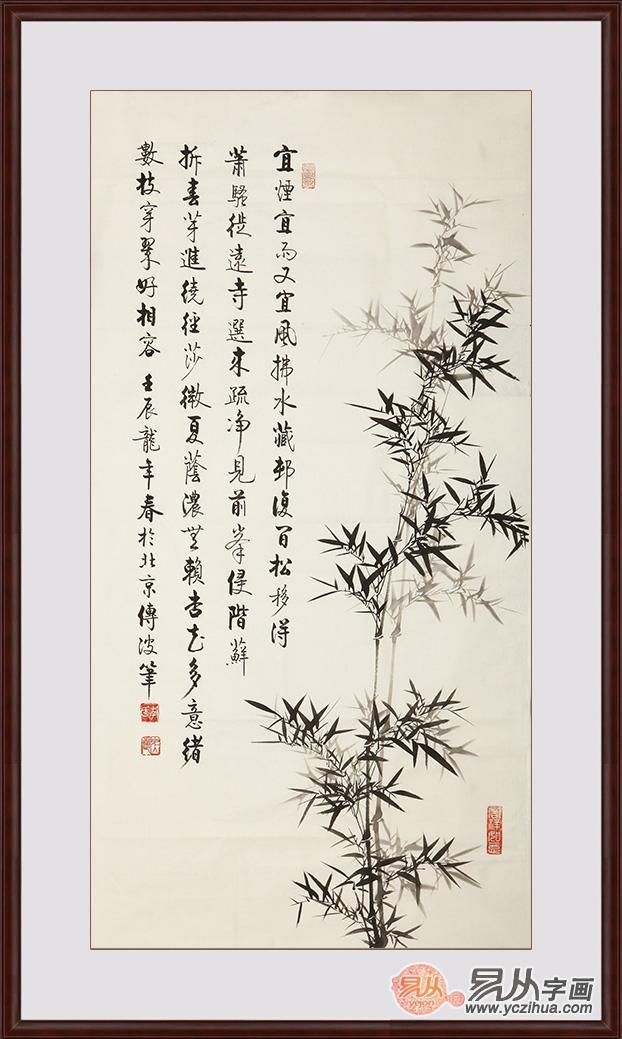 宜煙宜雨又宜風拂水藏邨復間松移得
蕭騷從遠寺選来疏净見前峯侵階蘚
拆春芽進繞徑莎微夏蔭濃無賴杏花多意緒
數枝穿翠好相容 壬辰龍年春於北京傳波筆
易从字画
www.yczihua.com